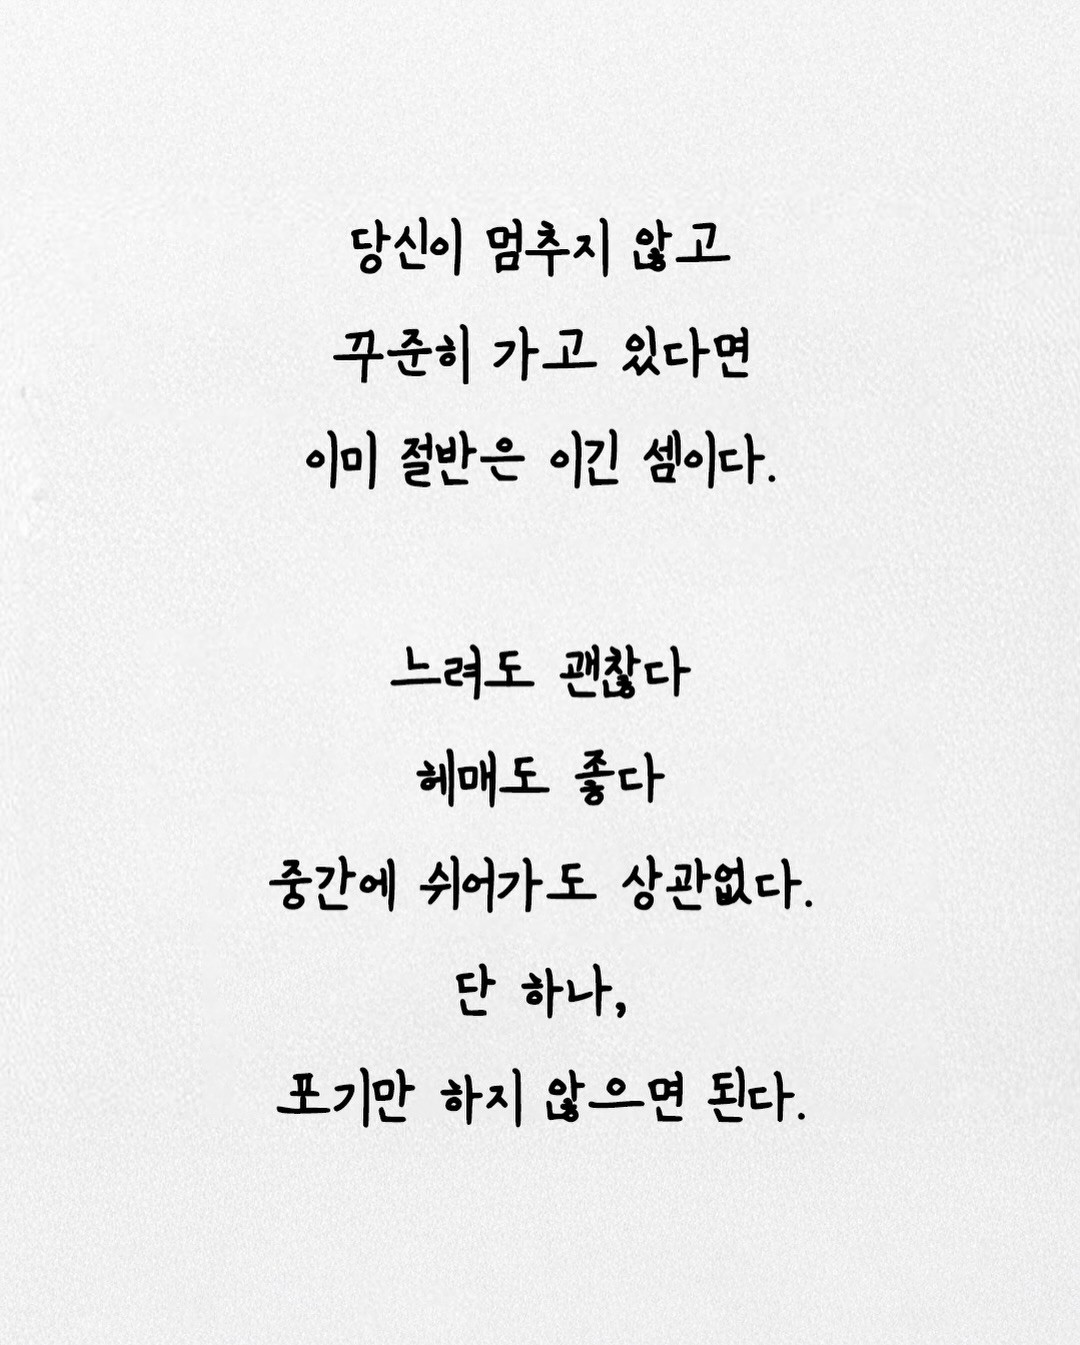 당신이 멈추지 않고
꾸준히 가고 있다면
이미 절반은 이긴 셈이다.
느려도 괜찮다
헤매도 좋다
중간에 쉬어가도 상관없다.
단 하나,
포기만 하지 않으면 된다.